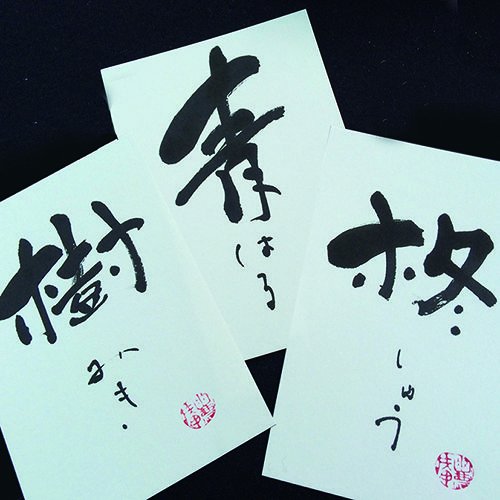 樹
みき
青
はる
柊
しゅう